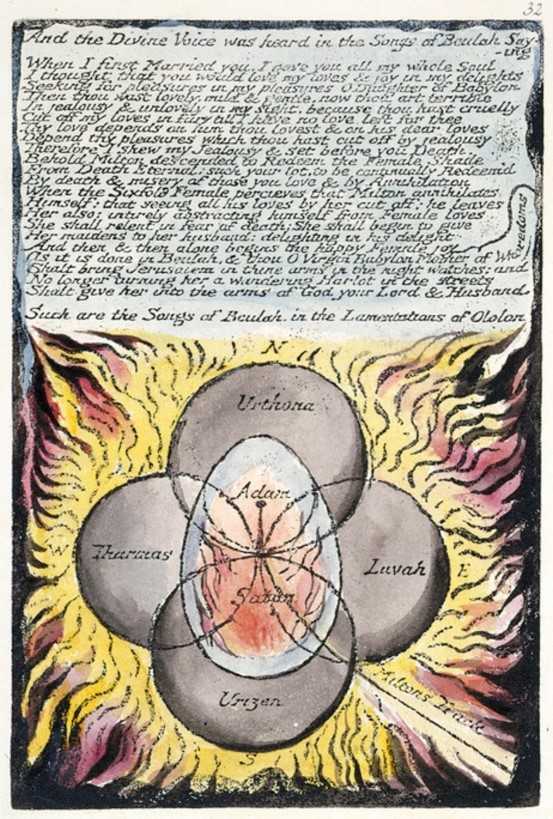 32
And the Divine Voice was heard in the Songs of Beulah Say-
-ing
When I first Married you, I gave you all my whole Soul
I thought that you would love my loves & joy in my delights
Seeking for pleasures in my pleasures O Daughter of Babylon
Then thou wast lovely, mild & gentle, now thou art terrible
In jealousy & unlovely in my sight, because thou hast cruelly
Cut off my loves in fury till I have no love left for thee
Thy love depends on him thou lovest & on his dear loves
Depend thy pleasures which thou hast cut off by jealousy
Therefore I shew my Jealousy & set before you Death.
Behold Milton descended to Redeem the Female Shade
From Death Eternal; such your lot, to be continually Redeem'd
By death & misery of those you love & by Annihilation
When the Sixfold Female percieves that Milton annihilates
Himself: that seeing all his loves by her cut off: he leaves
Her also: intirely abstracting himself from Female loves
She shall relent in fear of death; She shall begin to give
Her maidens to her husband: delighting in his delight
And then & then alone begins the happy Female joy
As it is done in Beulah, & thou O Virgin Babylon Mother of Whoredoms
Shalt bring Jerusalem in thine arms in the night watches; and
No longer turning her a wandering Harlot in the streets
Shalt give her into the arms of God your Lord & Husband.
Such are the Songs of Beulah in the Lamentations of Ololon
N
Urthona
Adam
W
Tharmas
Luvah
E
Satan
Miltons Track
Urizen
S